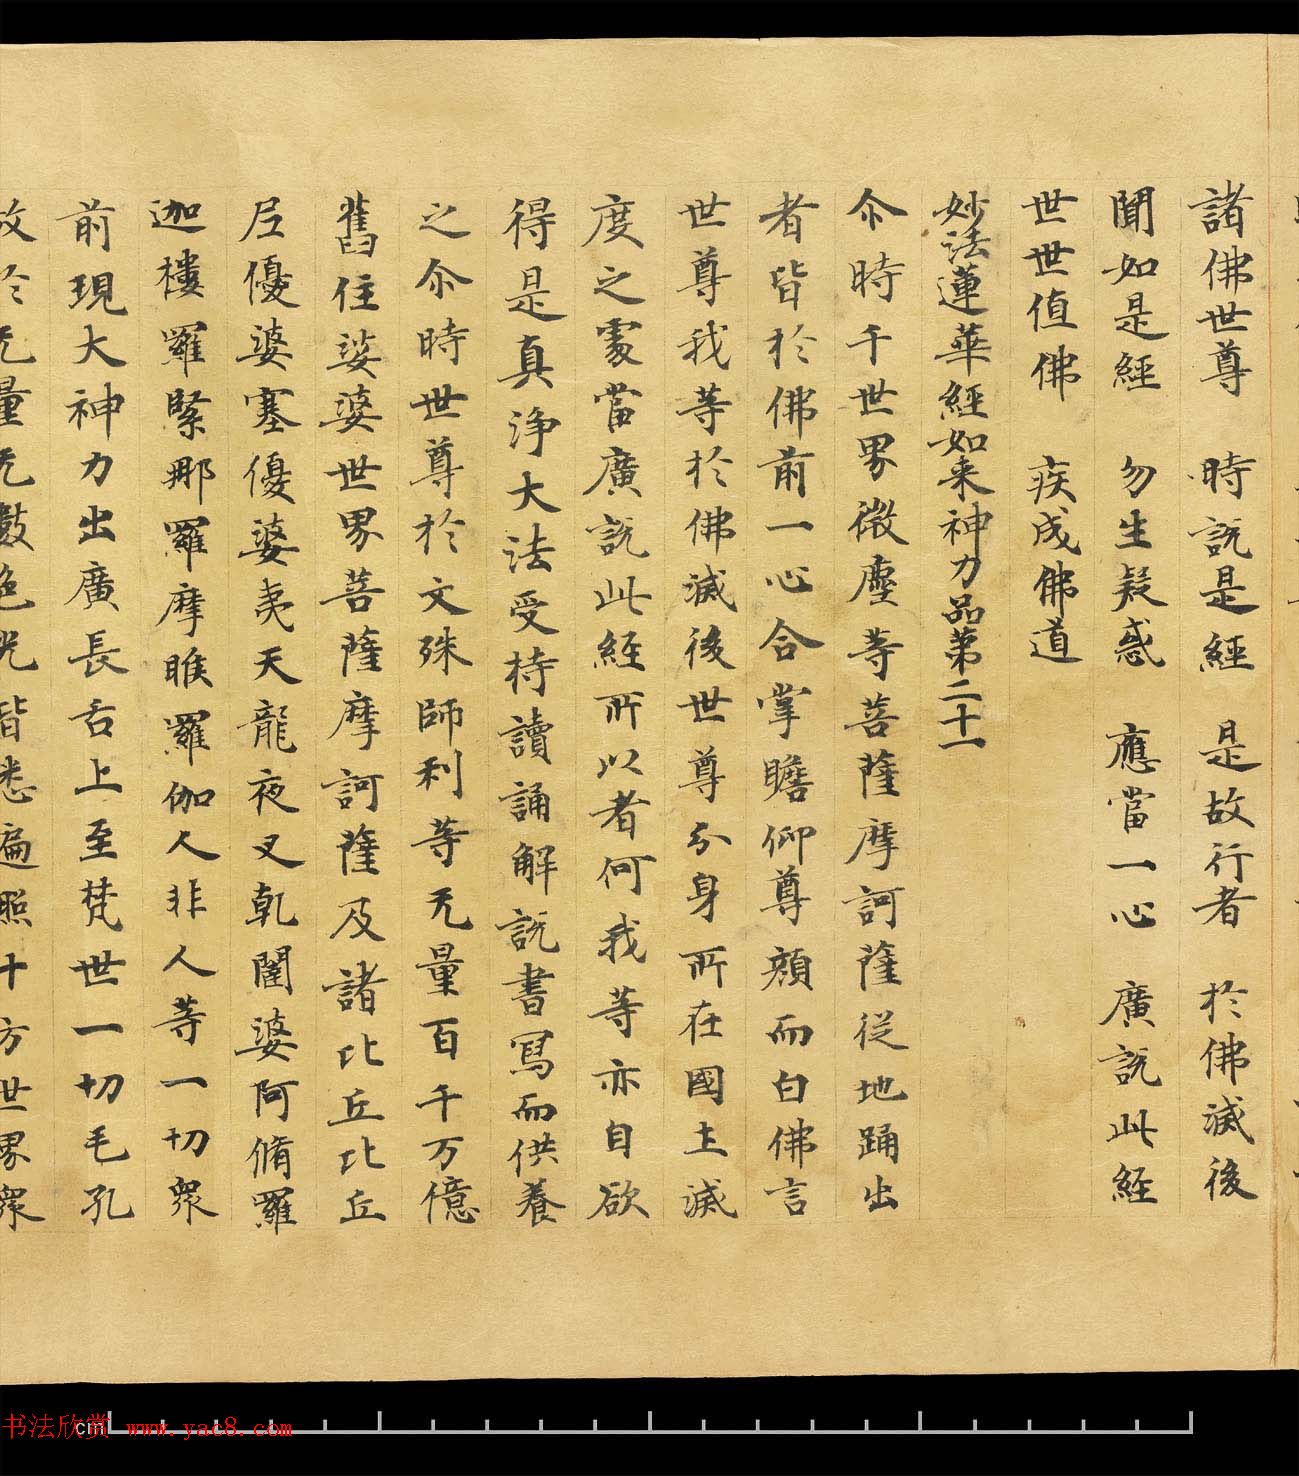 諸佛世尊　時說是經　是故行者　於佛滅後
聞如是經　勿生疑惑　應當一心　廣說此經
世世值佛　疾成佛道
妙法蓮華經如来神力品第二十一
尒時千世界微塵等菩薩摩訶薩從地踊出
者皆於佛前一心合掌瞻仰尊顏而白佛言
世尊我等於佛滅後世尊分身所在國土滅
度之處當廣說此經所以者何我等亦自欲
得是真淨大法受持讀誦解說書寫而供養
之尒時世尊於文殊師利等无量百千万億
舊住娑婆世界菩薩摩訶薩及諸比丘比丘
尼優婆塞優婆夷天龍夜叉乹闥婆阿脩羅
迦樓羅緊那羅摩睺羅伽人非人等一切衆
前現大神力出廣長舌上至梵世一切毛孔
放於无量无數色光皆悉遍照十方世界衆
书法欣赏 www.yac8.com
cm